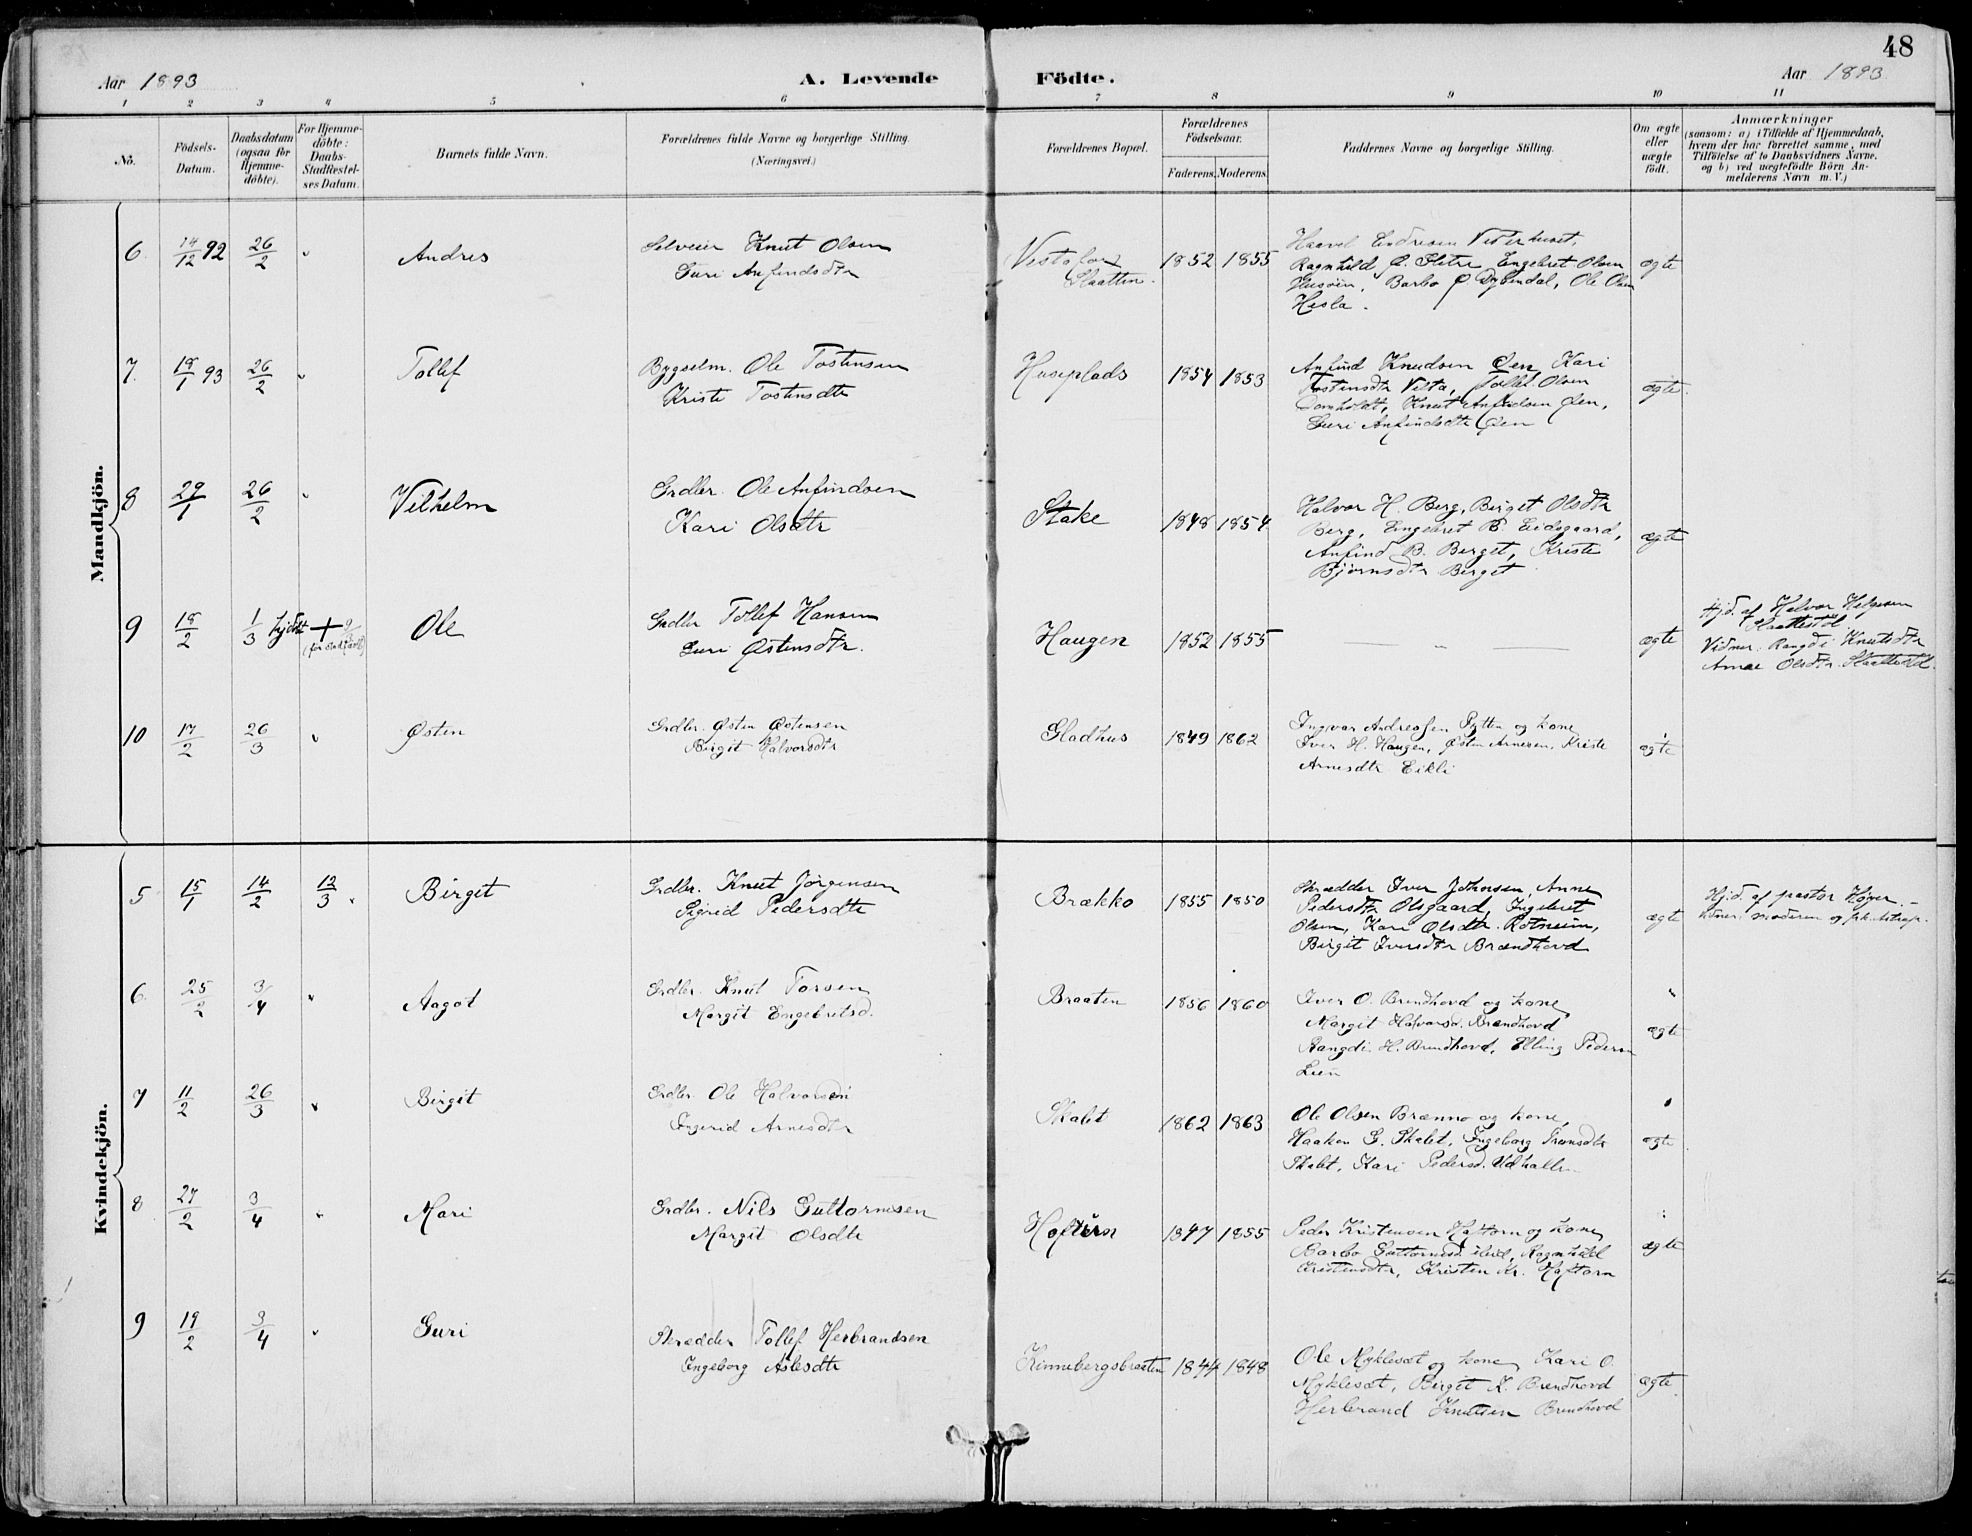 48
Aar 1893
A. Levende
Födte.
Aar 1893
1 2 3 4 5 6 7 8 9 10 11
No.
Födsels-
Datum.
Daabsdatum
(ogsaa for
Hjemme-
döbte).
For Hjemme-
döbte:
Daabs-
Stadfæstel-
ses Datum.
Barnets fulde Navn.
Forældrenes fulde Navne og borgerlige Stilling.
(Næringsvei.)
Forældrenes Bopæl.
Forældrenes
Födselsaar.
Faderens. Moderens.
Faddernes Navne og borgerlige Stilling.
Om ægte
eller
uægte
født.
Anmærkninger
(saasom: a) i Tilfælde af Hjemmedaab,
hvem der har forrettet samme, med
Tilföielse af to Daabsvidners Navne,
og b) ved uægtefödte Börn An-
melderens Navn m. V.)
Mandkjön.
6 14/12 92 26/2 " Andres
Selveier Knut Olsen
Guri Anfindsdtr
Slaatten.
1852 1855
Haavel Endresen Vesterhuset,
Ragnhild O. Sletre Engebret Olsen
Barbo O. Dybendal, Ole Olsen
Hesla.
ægte
7. 18/1 93 26/2 " Tollef
Bygselm. Ole Tostensen
Kristi Tostensdtr
Huseplads 1854 1853
Anfind Knudsen Øen Kari
Tostensdtr Villa, Tollef Olsen
Knut Anfindsen Øen,
Guri Anfindsdtr Øen
ægte.
8 29/1 26/2 " Vilhelm
Grdbr. Ole Anfindsen
Kari Olsdtr
Stake 1848 1854
Halvor H. Berg, Birget Olsdtr
Berg, Engebret B. Eidsgaard,
Anfind B. Berget, Kristi
Bjørnsdtr Berget
ægte
9 18/2 1/3 hjdbt + Ole
Grdbr Tollef Hansen
Guri Østensdtr.
Haugen 1852 1855 — " — ægte
Hjd. af Halvor Helgesen
Slaattestøl.
Vidner. Rangdi Knutsdtr
Anne Olsdtr. Slaattestøl.
10 17/2 26/3 " Østen
Grdbr. Østen Østensen
Birgit Halvorsdtr
Gladhus 1849 1862
Ingvar Andreassen Pytten og kone
Iver H. Haugen, Østen Arnesen, Kristi
Arnesdtr Eikli
ægte
Kvindekjön.
5 15/1 14/2 12/3 " Birget
Grdbr. Knut Jörgensen
Sigrid Pedersdtr
Brækko 1855 1850
Skrædder Iver Johnsen, Anne
Pedersdtr Olsgaard, Ingebret
Olsen, Kari Olsdtr. Rotneim,
Birgit Iversdtr Brændhovd
ægte
Hjd. af pastor Høyer. –
moderen og
6 25/2 3/4 " Aagot
Grdbr. Knut Torsen
Margit Engebretsd.
Braaten 1856 1860
Iver O. Brendhovd og kone
Margit Halvorsd. Brændhovd
Rangdi H. Brendhovd, Elling Pedersen
Lien
ægte
7 11/2 26/3 " Birgit
Grdbr Ole Halvorsen
Ingerid Arnesdtr
Skalet 1862 1863
Ole Olsen Brænno og kone,
Haaken G. Skalet, Ingeborg Trønsdtr
Skalet, Kari Pedersd.
ægte
8 27/2 3/4 " Mari
Grdbr. Nils Guttormsen
Margit Olsdtr
Haftorn 1847 1855
Peder Kristensen Haftorn og kone
Barbo Guttormsd ibid, Ragnhild
Kristensdtr, Kristen Kr. Haftorn
ægte
9 19/2 3/4 " Guri
Skrædder Tollef Herbrandsen
Ingeborg Aslesdtr
Kinnebergsbraaten 1844 1848
Ole Myklesæt og kone, Kari O.
Myklesæt, Birgit K. Brendhovd
Herbrand Knutsen Brendhovd
ægte